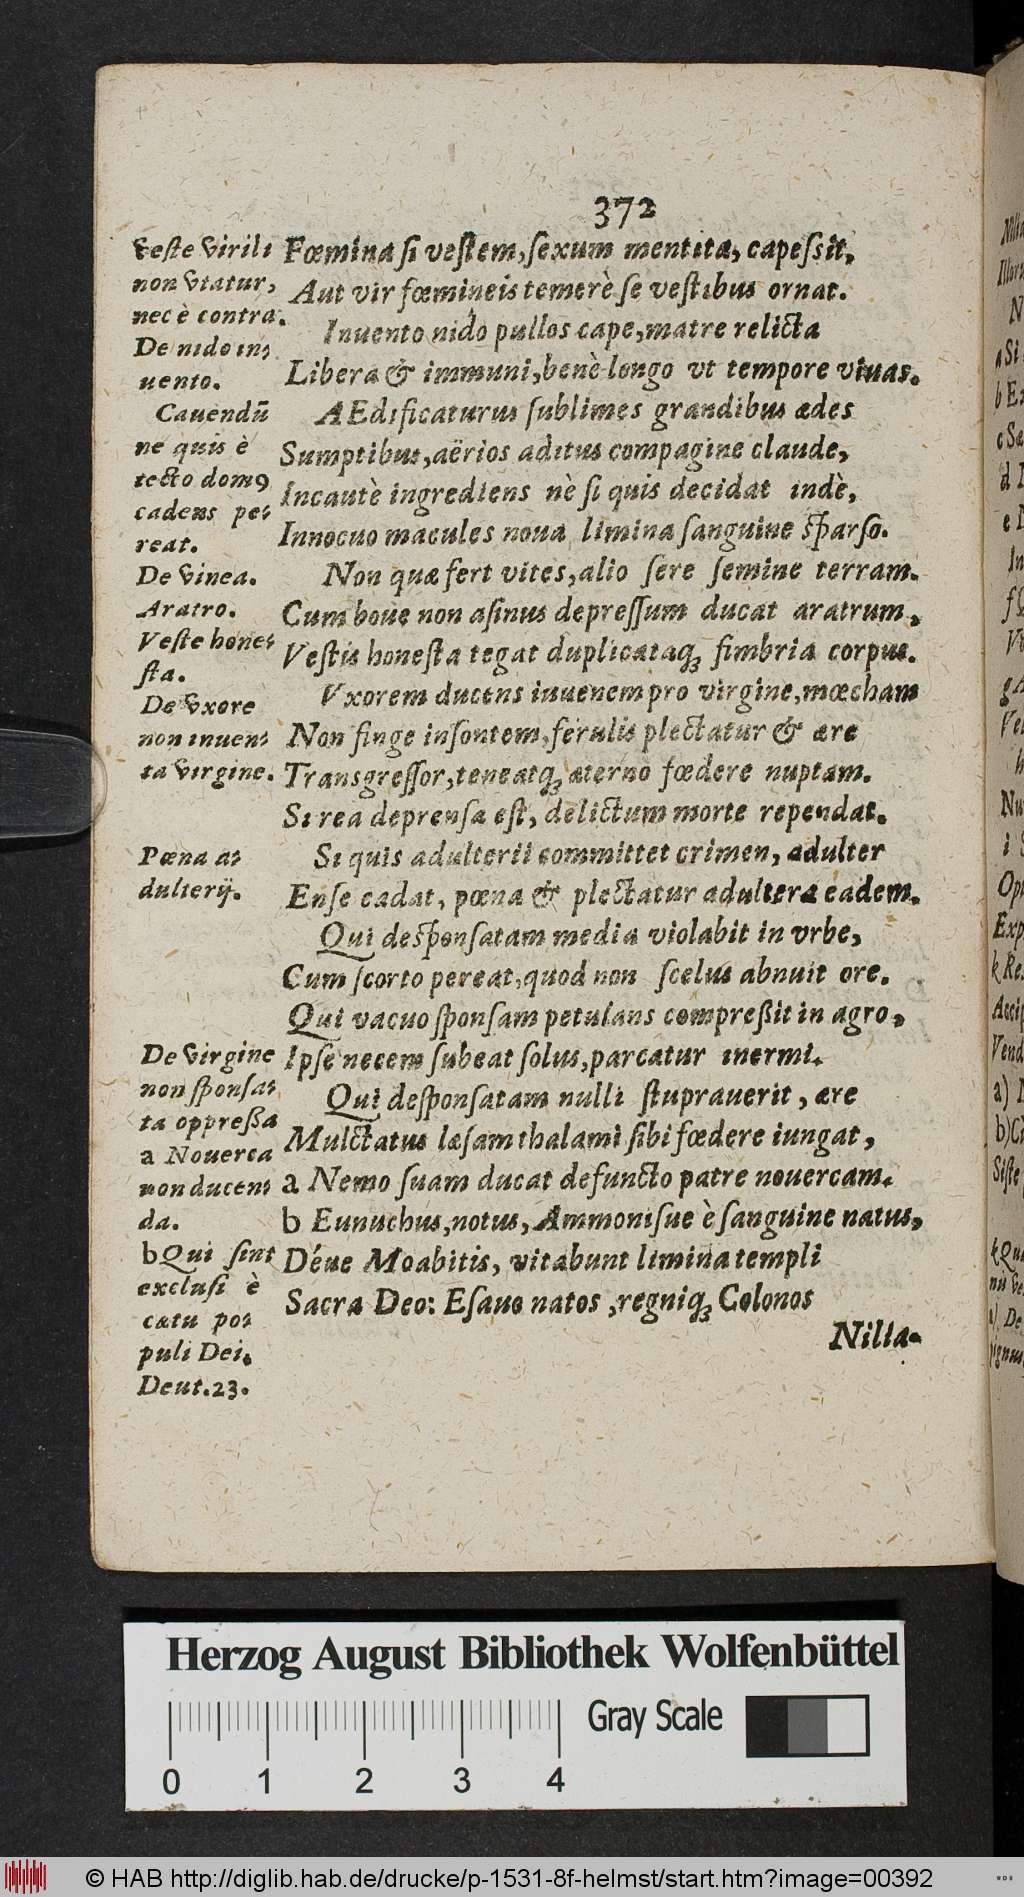 372
veſte virili
non vtatur,
nec è contra.
De nido in⸗
uento.
Cauendū
ne quis è
tecto domꝰ
cadens pe⸗
reat.
De vinea.
Aratro.
Veſte hone⸗
ſta.
De vxore
non inuen⸗
ta virgine.
Pœna a⸗
dulterij.
De virgine
non ſponſa⸗
ta oppreßa
a Nouerca
non ducen⸗
da.
b Qui ſint
excluſi è
cœtu po⸗
puli Dei.
Deut. 23.
Fœmina ſi veſtem, ſexum mentita, capeſsit,
Aut vir fœmineis temerè ſe veſtibus ornat.
Inuento nido pullos cape, matre relicta
Libera & immuni, benè longo vt tempore viuas.
AEdificaturus ſublimes grandibus ædes
Sumptibus, aërios aditus compagine claude,
Incautè ingrediens nè ſi quis decidat indè,
Innocuo macules noua limina ſanguine ſparſo.
Non quæ fert vites, alio ſere ſemine terram.
Cum boue non aſinus depreſſum ducat aratrum,
Veſtis honeſta tegat duplicataq; fimbria corpus.
Vxorem ducens iuuenem pro virgine, mœcham
Non finge inſontem, ferulis plectatur & ære
Transgreſſor, teneatq; æterno fœdere nuptam.
Si rea deprenſa eſt, delictum morte rependat.
Si quis adulterii committet crimen, adulter
Enſe cadat, pœna & plectatur adultera eadem.
Qui desponſatam media violabit in vrbe,
Cum ſcorto pereat, quod non ſcelus abnuit ore.
Qui vacuo ſponſam petulans compreßit in agro,
Ipſe necem ſubeat ſolus, parcatur inermi.
Qui deſponſatam nulli ſtuprauerit, ære
Mulctatus læſam thalami ſibi fœdere iungat,
a Nemo ſuam ducat defuncto patre nouercam.
b Eunuchus, notus, Ammonisue è ſanguine natus,
Déue Moabitis, vitabunt limina templi
Sacra Deo: Eſauo natos, regniq; Colonos
Nilia-
Herzog August Bibliothek Wolfenbüttel
Gray Scale
0 1 2 3 4
© HAB http://diglib.hab.de/drucke/p-1531-8f-helmst/start.htm?image=00392